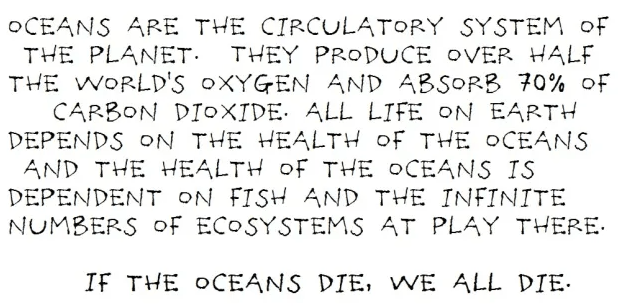 OCEANS ARE THE CIRCULATORY SYSTEM OF
THE PLANET. THEY PRODUCE OVER HALF
THE WORLD'S OXYGEN AND ABSORB 70% OF
CARBON DIOXIDE. ALL LIFE ON EARTH
DEPENDS ON THE HEALTH OF THE OCEANS
AND THE HEALTH OF THE OCEANS IS
DEPENDENT ON FISH AND THE INFINITE
NUMBERS OF ECOSYSTEMS AT PLAY THERE.
IF THE OCEANS DIE, WE ALL DIE.